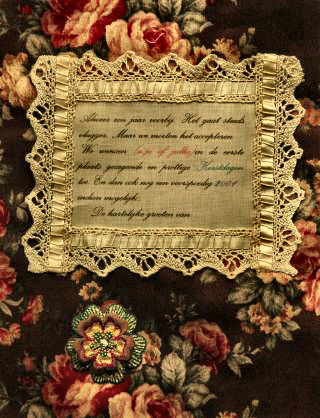 Alweer een jaar voorbij. Het gaat steeds
vlugger. Maar we moeten het accepteren.
We wensen (u je of jullie) in de eerste
plaats gezegende en prettige Kerstdagen
toe. En dan ook nog een voorspoedig 2001
indien mogelijk.
De hartelijke groeten van